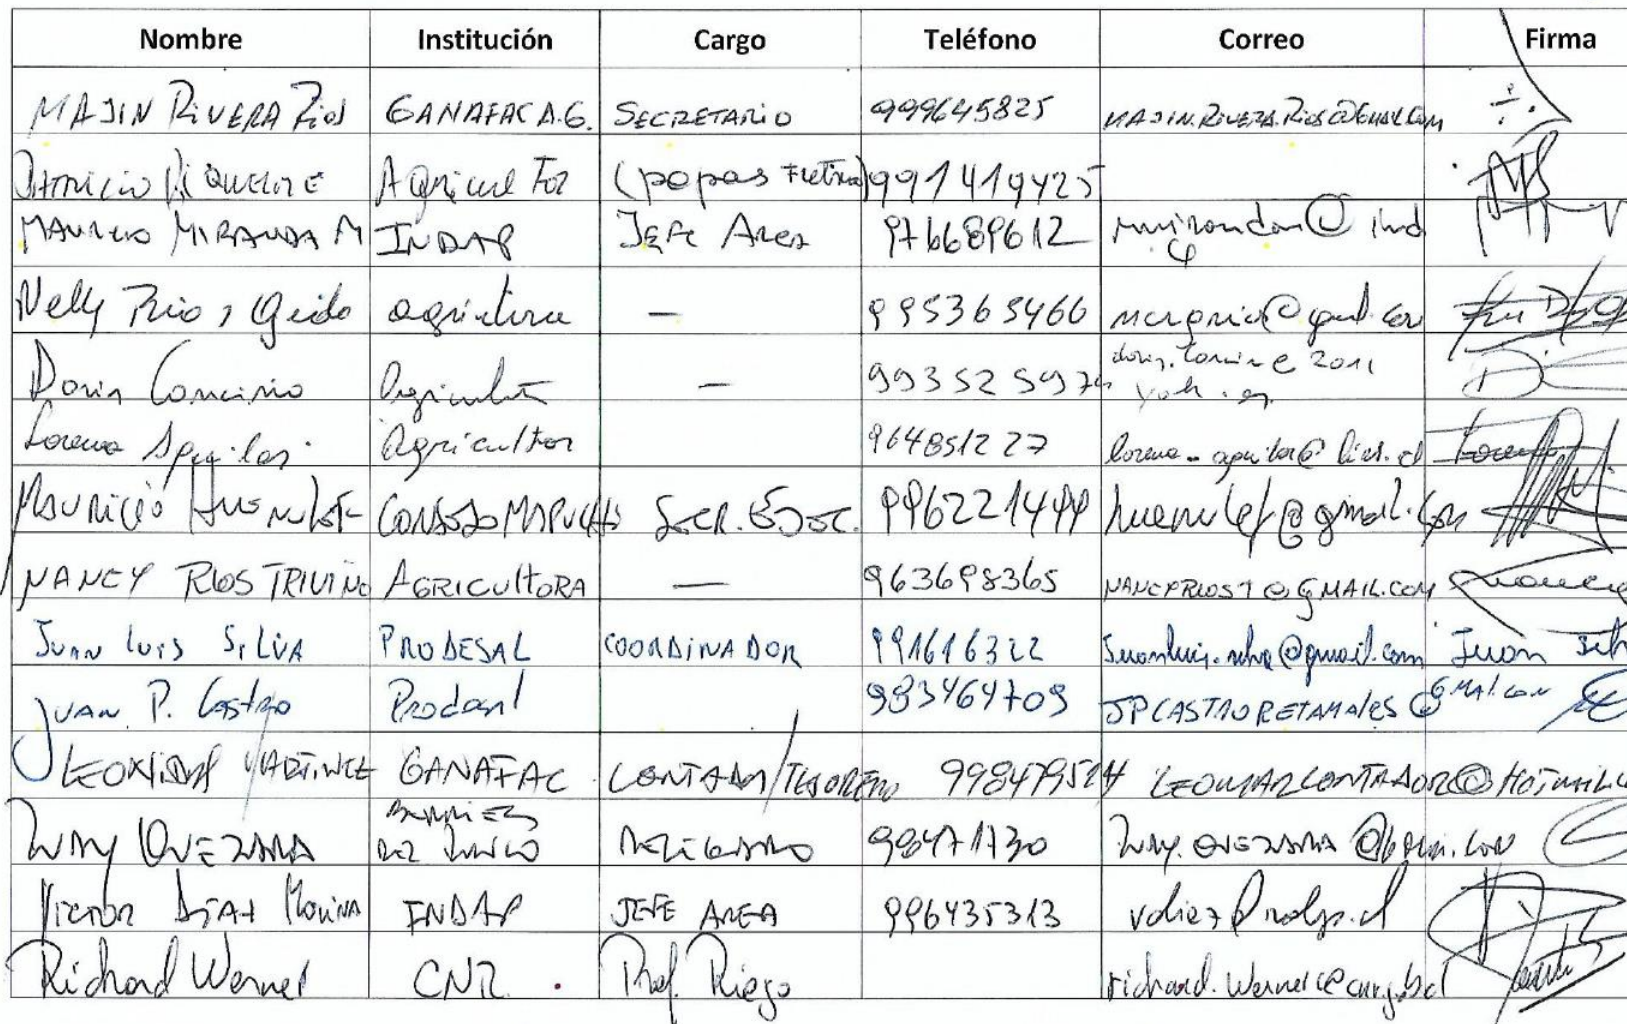 Nombre Institución Cargo Teléfono Correo Firma
MAJIN RIVERA Rios GANAFAC A.G. SECRETARIO 999645825 MAJIN.RIVERA.Rios@GMAIL.COM
PATRICIO RIQUELME Agricultor (papas Fritas) 991419425
MAURICIO MIRANDA M INDAP Jefe Area 976689612 mmiranda@ind
Nelly Rios agricultora — 995365466
Doris Agricultora — 99352597
Lorena Aguilar Agricultor 964851227
MAURICIO HUENULEF CONSEJO MAPUCHE SECR. EJEC. 996221499 huenulef@gmail.com
NANCY RIOS TRIVIÑO AGRICULTORA — 963698365 NANCYRIOST@GMAIL.COM
JUAN LUIS SILVA PRODESAL COORDINADOR 991616322 Juanluis.silva@gmail.com Juan Silva
JUAN P. Castro Prodesal 983464709 JPCASTRORETAMALES@GMAI.COM
LEONIDAS MARTINEZ GANAFAC CONTADOR/TESORERO LEOMARCONTADOR@HOTMAIL.CO
QUEZADA DELEGADO 98471730
Victor DIAZ MOLINA INDAP JEFE AREA 996435313
Richard Werner CNR Prof. Riego richard.werner@cnr.gob.cl